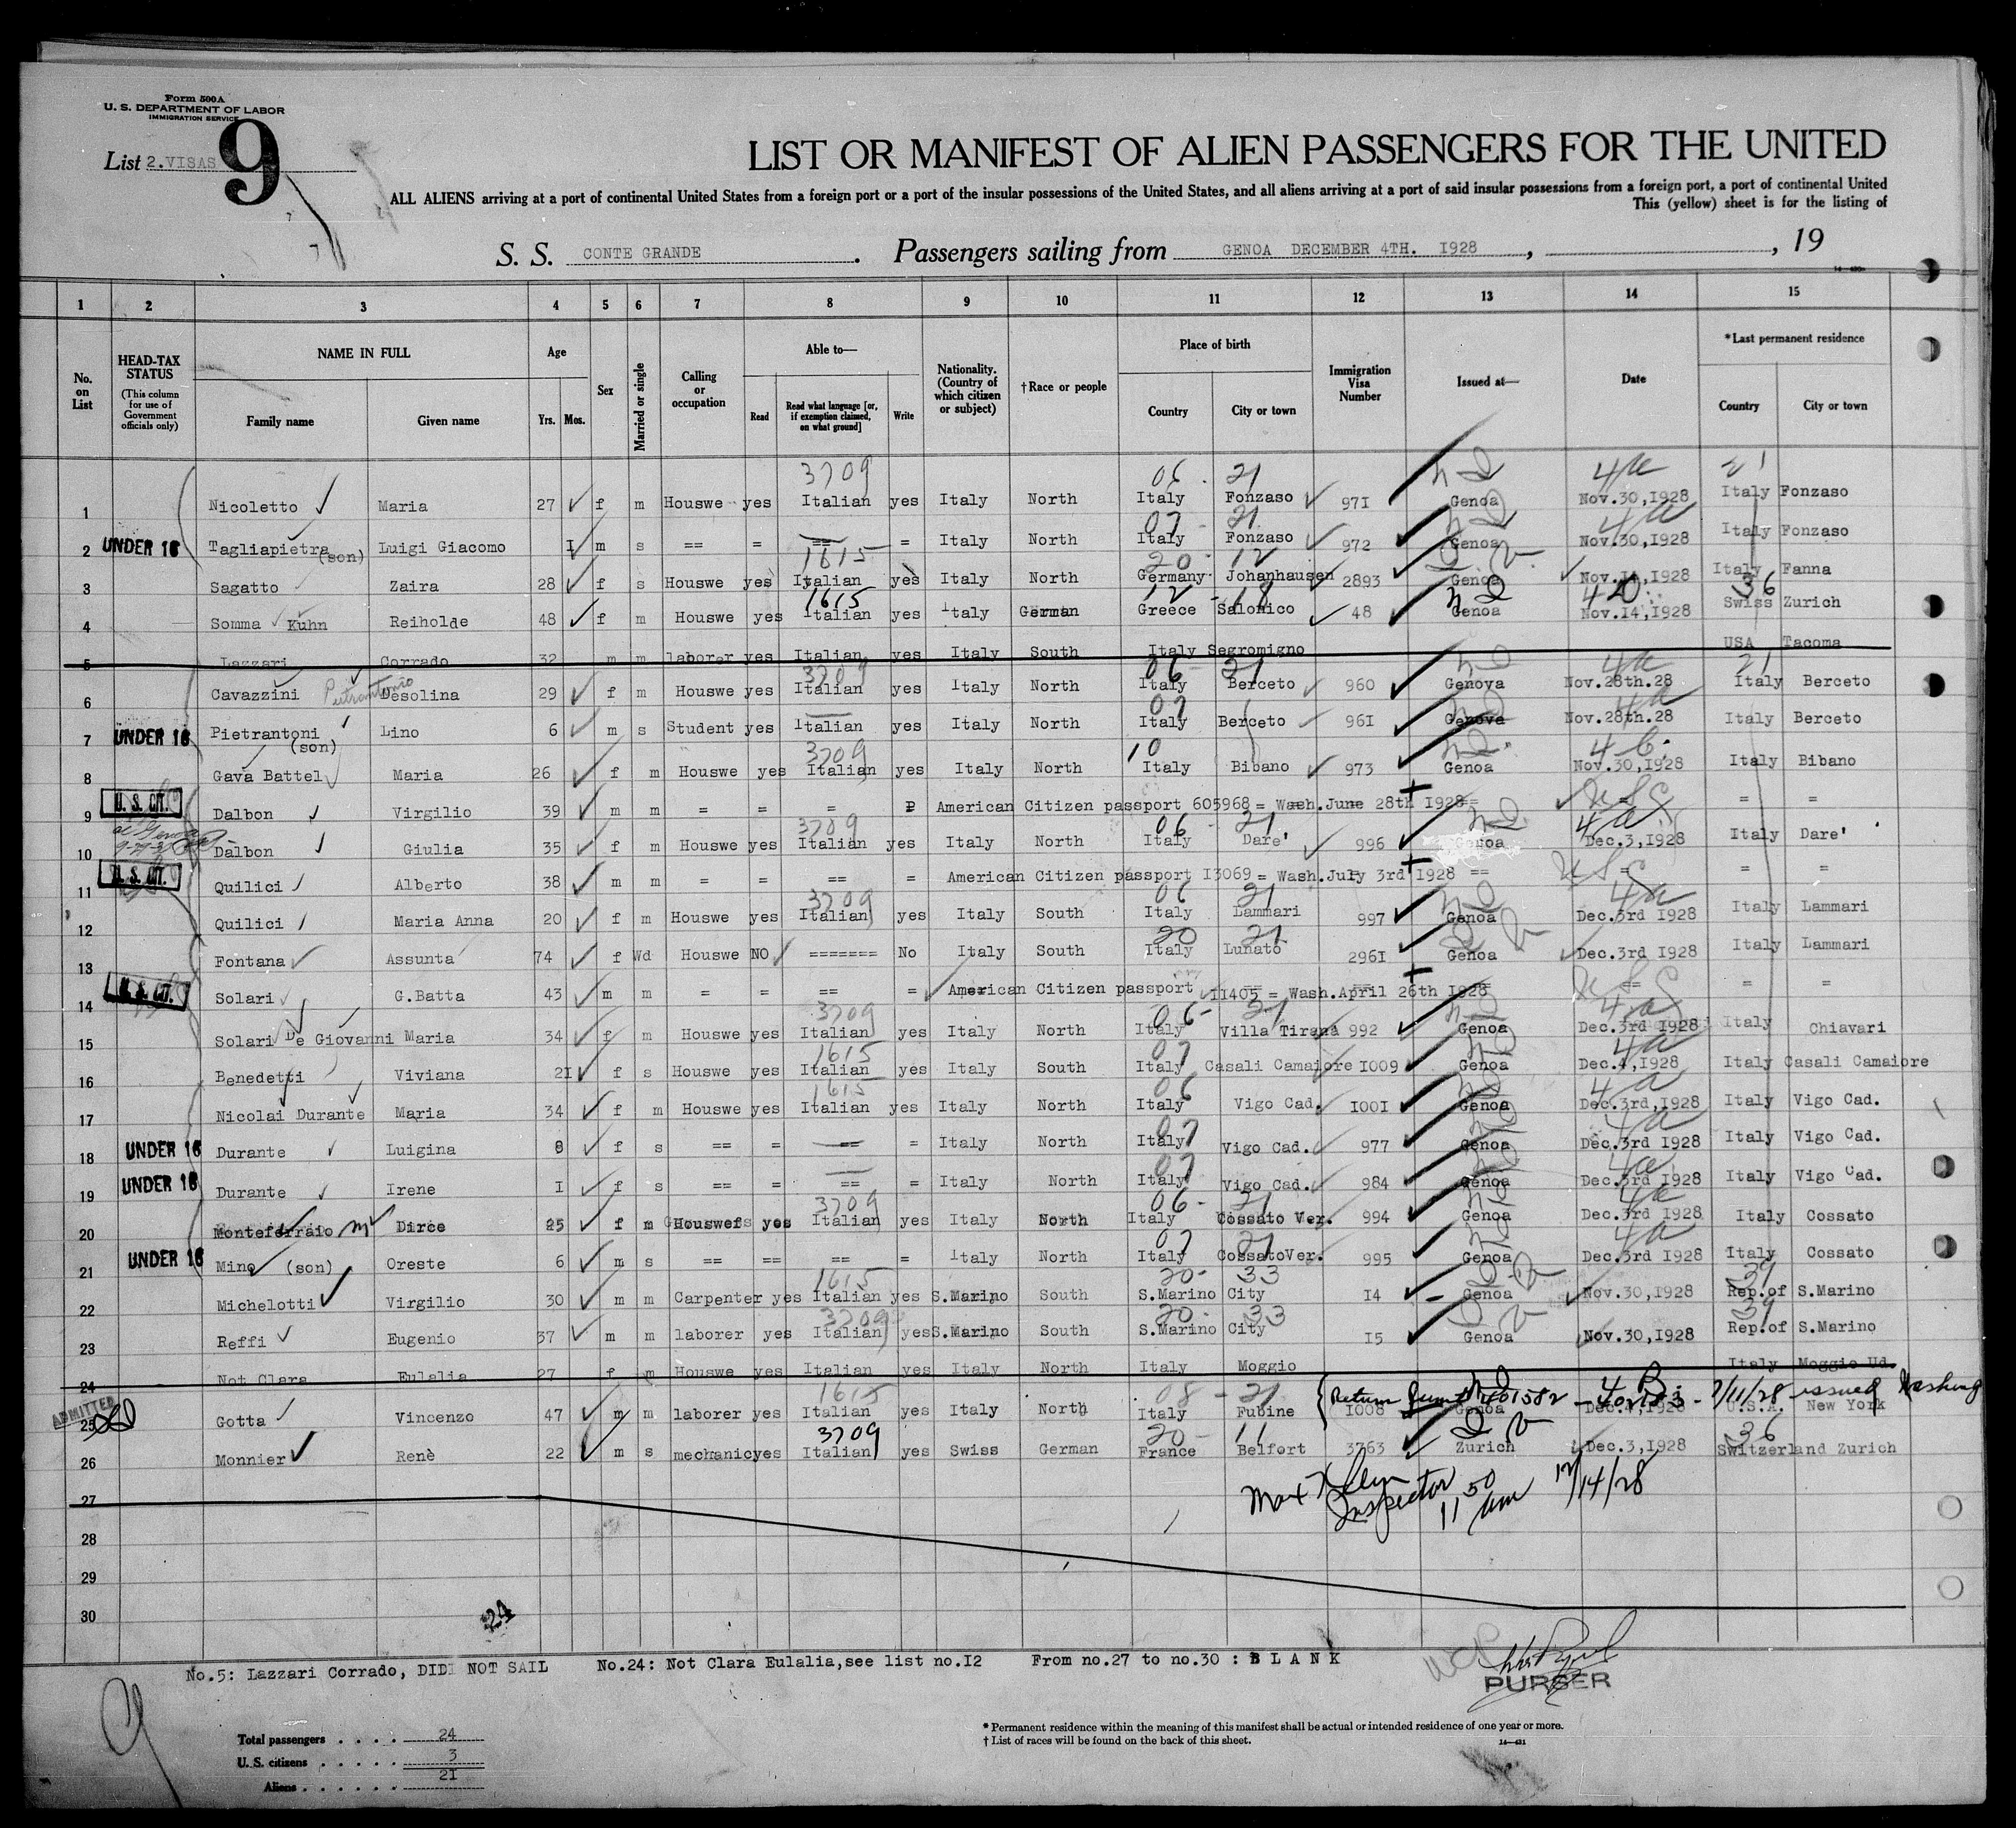 Form 500A
U. S. DEPARTMENT OF LABOR
IMMIGRATION SERVICE
9
List 2.VISAS
LIST OR MANIFEST OF ALIEN PASSENGERS FOR THE UNITED
ALL ALIENS arriving at a port of continental United States from a foreign port or a port of the insular possessions of the United States, and all aliens arriving at a port of said insular possessions from a foreign port, a port of continental United
This (yellow) sheet is for the listing of
S. S. CONTE GRANDE . Passengers sailing from GENOA DECEMBER 4TH. I928 , , 19
1 2 3 4 5 6 7 8 9 10 11 12 13 14 15
No. on List
HEAD-TAX STATUS (This column for use of Government officials only)
NAME IN FULL Family name Given name
Age Yrs. Mos.
Sex
Married or single
Calling or occupation
Able to— Read Read what language [or, if exemption claimed, on what ground] Write
Nationality. (Country of which citizen or subject)
†Race or people
Place of birth Country City or town
Immigration Visa Number
Issued at—
Date
*Last permanent residence Country City or town
3709 06 - 21 4a 21
1 Nicoletto Maria 27 f m Houswe yes Italian yes Italy North Italy Fonzaso 97I Genoa Nov.30,I928 Italy Fonzaso
07 - 21 4a
2 UNDER 16 Tagliapietra (son) Luigi Giacomo I m s == = == = Italy North Italy Fonzaso 972 Genoa Nov.30,I928 Italy Fonzaso
1615 20 - 12
3 Sagatto Zaira 28 f s Houswe yes Italian yes Italy North Germany Johanhausen 2893 Genoa Nov.I4,I928 Italy Fanna
1615 12 - 18 4D 36
4 Somma Kuhn Reiholde 48 f m Houswe yes Italian yes Italy German Greece Salonico 48 Genoa Nov.I4,I928 Swiss Zurich
5 Lazzari Corrado 32 m m laborer yes Italian yes Italy South Italy Segromigno USA Tacoma
3709 06 - 21 4a 21
6 Cavazzini Pietrantonio Desolina 29 f m Houswe yes Italian yes Italy North Italy Berceto 960 Genova Nov.28th.28 Italy Berceto
07 4a
7 UNDER 16 Pietrantoni (son) Lino 6 m s Student yes Italian yes Italy North Italy Berceto 96I Genova Nov.28th.28 Italy Berceto
3709 10
8 Gava Battel Maria 26 f m Houswe yes Italian yes Italy North Italy Bibano 973 Genoa Nov.30,I928 Italy Bibano
9 U. S. CIT. Dalbon Virgilio 39 m m = = = American Citizen passport 605968 = Wash.June 28th I928 = =
3709 06 - 21 4a
10 Dalbon Giulia 35 f m Houswe yes Italian yes Italy North Italy Dare' 996 Genoa Dec.3,I928 Italy Dare'
11 U. S. CIT. Quilici Alberto 38 m m = = == = American Citizen passport I3069 = Wash.July 3rd I928 == = =
3709 06 21 4a
12 Quilici Maria Anna 20 f m Houswe yes Italian yes Italy South Italy Lammari 997 Genoa Dec.3rd I928 Italy Lammari
20 21
13 Fontana Assunta 74 f Wd Houswe NO ======= No Italy South Italy Lunato 296I Genoa Dec.3rd I928 Italy Lammari
14 U. S. CIT. Solari G.Batta 43 m m = = == = American Citizen passport II405 = Wash.April 26th I928 = = =
3709 06- 21 4a
15 Solari De Giovanni Maria 34 f m Houswe yes Italian yes Italy North Italy Villa Tirena 992 Genoa Dec.3rd I928 Italy Chiavari
1615 07 4a
16 Benedetti Viviana 2I f s Houswe yes Italian yes Italy South Italy Casali Camaiore I009 Genoa Dec.4,I928 Italy Casali Camaiore
1615 06 4a
17 Nicolai Durante Maria 34 f m Houswe yes Italian yes Italy North Italy Vigo Cad. I00I Genoa Dec.3rd,I928 Italy Vigo Cad.
07 4a
18 UNDER 16 Durante Luigina 8 f s == = == = Italy North Italy Vigo Cad. 977 Genoa Dec.3rd I928 Italy Vigo Cad.
07 4a
19 UNDER 16 Durante Irene I f s == = == = Italy North Italy Vigo Cad. 984 Genoa Dec.3rd I928 Italy Vigo Cad.
3709 06 - 21 4a
20 Monteferraio Dirce 25 f m yes Italian yes Italy North Italy Cossato Ver. 994 Genoa Dec.3rd I928 Italy Cossato
07 21 4a
21 UNDER 16 Mino (son) Oreste 6 m s == == == = Italy North Italy CossatoVer. 995 Genoa Dec.3rd I928 Italy Cossato
1615 20- 33 39
22 Michelotti Virgilio 30 m m Carpenter yes Italian yes S.Marino South S.Marino City I4 Genoa Nov.30,I928 Rep.of S.Marino
3709 20- 33 39
23 Reffi Eugenio 37 m m laborer yes Italian yes S.Marino South S.Marino City I5 Genoa Nov.30,I928 Rep.of S.Marino
24 Not Clara Eulalia 27 f m Houswe yes Italian yes Italy North Italy Moggio Italy Moggio Ud.
1615 08 - 21 4B
25 ADMITTED Gotta Vincenzo 47 m m laborer yes Italian yes Italy North Italy Fubine I008 Genoa Dec.4,I928 U.S.A. New York
3709 20- 11 36
26 Monnier Renè 22 m s mechanic yes Italian yes Swiss German France Belfort 3763 Zurich Dec.3,I928 Switzerland Zurich
Max Klein
Inspector 11 50 am 12/14/28
27
28
29
30
24
No.5: Lazzari Corrado, DID NOT SAIL No.24: Not Clara Eulalia,see list no.I2 From no.27 to no.30 : B L A N K
PURSER
9
Total passengers . . . . 24
U. S. citizens . . . . . 3
Aliens . . . . . . 2I
* Permanent residence within the meaning of this manifest shall be actual or intended residence of one year or more.
† List of races will be found on the back of this sheet.
14—431